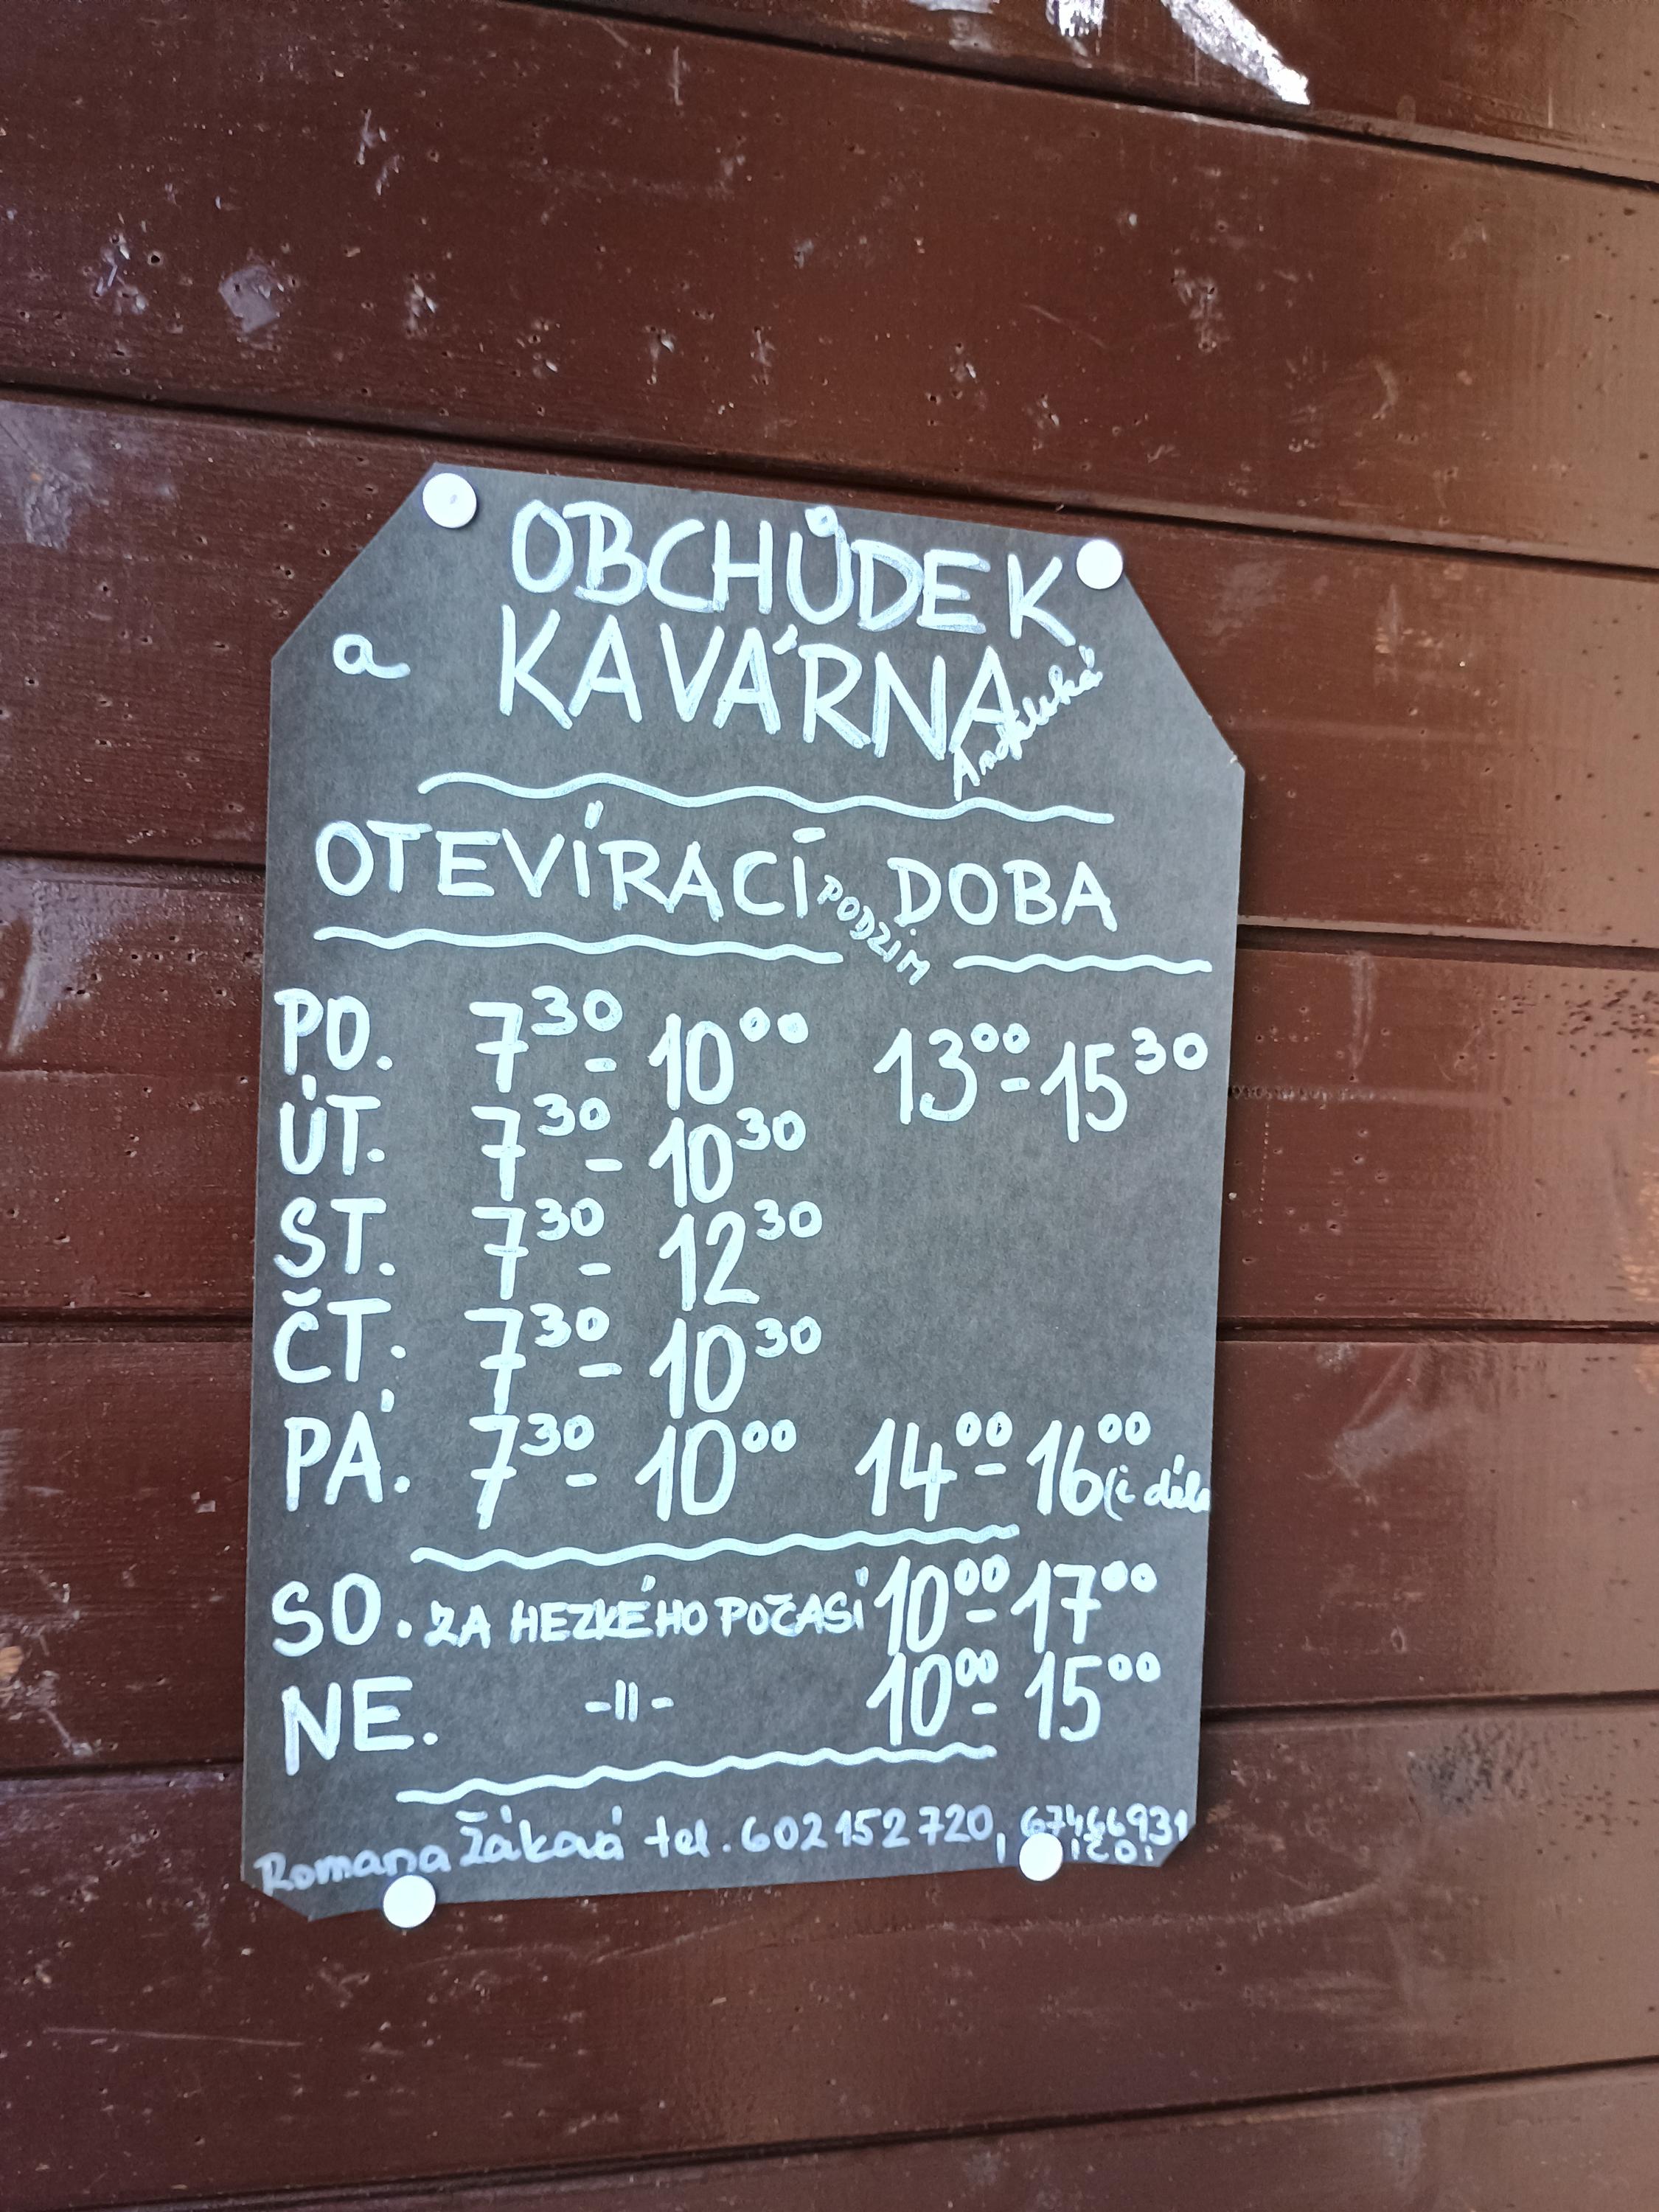 OBCHŮDEK
a KAVÁRNA
OTEVÍRACÍ DOBA
PODZIM
PO. 7³⁰ - 10⁰⁰ 13⁰⁰ - 15³⁰
ÚT. 7³⁰ - 10³⁰
ST. 7³⁰ - 12³⁰
ČT. 7³⁰ - 10³⁰
PÁ. 7³⁰ - 10⁰⁰ 14⁰⁰ - 16⁰⁰ (i déle
SO. ZA HEZKÉHO POČASÍ 10⁰⁰ - 17⁰⁰
NE. -||- 10⁰⁰ - 15⁰⁰
Romana Žáková tel. 602152720, 67466931
IČO: